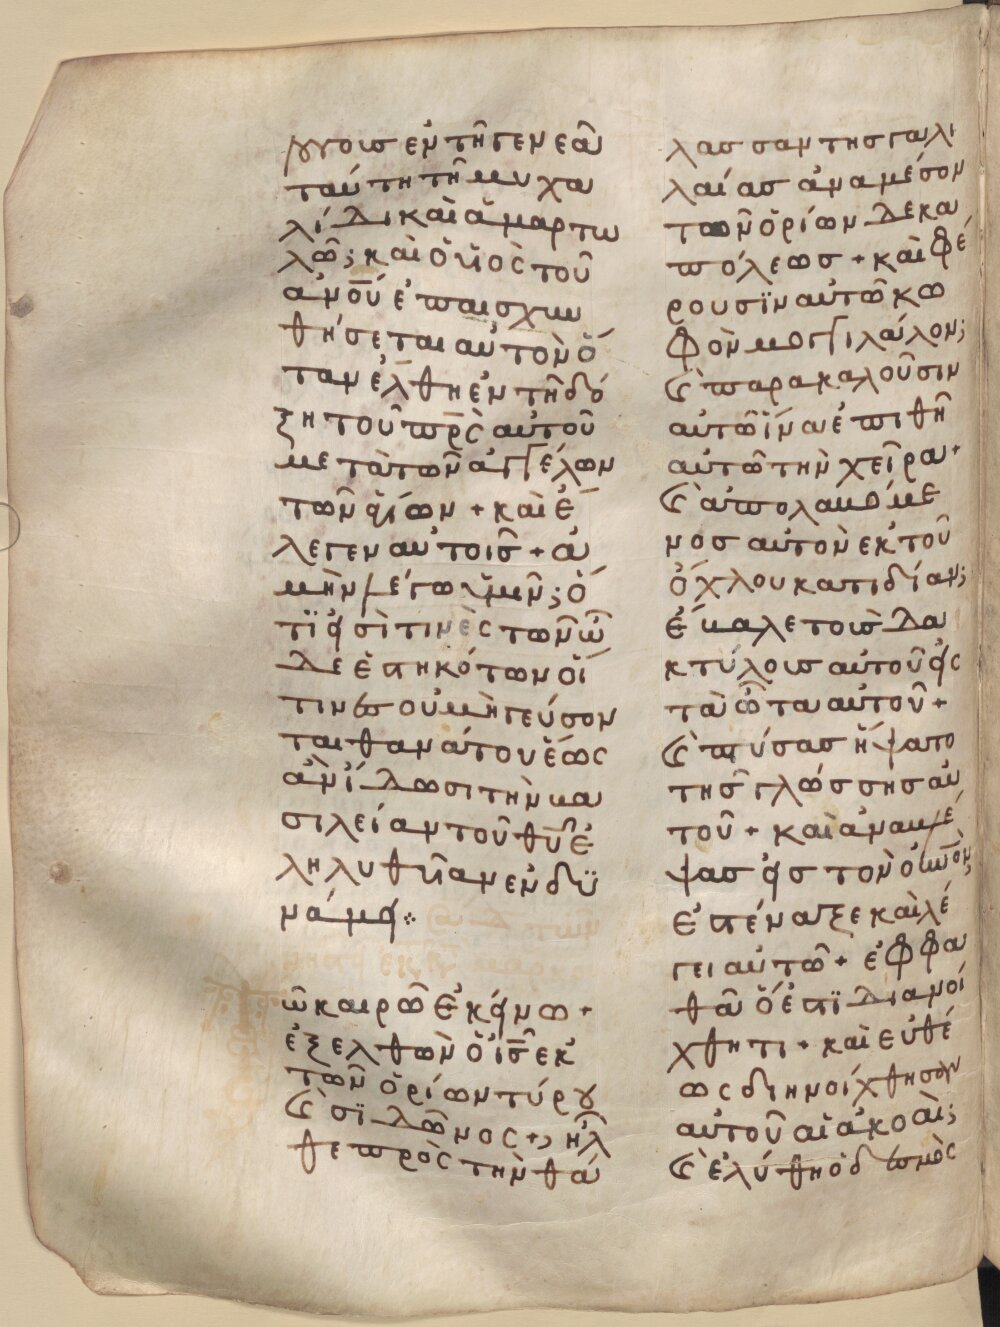 λόγοις ἐν τῆ γενεᾶ
ταύτη τῆ μοιχα
λίδι καὶ ἁμαρτω
λῶ; καὶ ὁ υἱὸς τοῦ
ἀνο̅υ̅ ἐπαισχυν
θήσεται αὐτὸν ὅ
ταν ἔλθη ἐν τῆ δό
ξη τοῦ π̅ρ̅ς̅ αὐτοῦ
μετὰ τῶν ἀγγέλων
τῶν ἁγίων + καὶ ἔ
λεγεν αὐτοῖς + ἀ
μὴν λέγω ὑμῖν; ὅ
τϊ εἰσὶ τινὲς τῶν ὧ
δε ἑστηκότων οἵ
τινες οὐ μὴ γεύσον
ται θανάτου ἕως
ἂν ἴδωσι τὴν βα
σιλείαν τοῦ θ̅υ̅ ἐ
ληλυθῖαν ἐν δϋ
νάμει ⁘
ῶ καιρῶ ἐκείνω +
ἐξελθὼν ὁ ι̅ς̅ ἐκ
τῶν ὁρίων τύρου
ϗ σϊδῶνος +, ἦλ
θε πρὸς τὴν θά
λασσαν της γαλι
λαίας ἀναμέσον
τῶν ὁρίων δεκα
πόλεως + καὶ φέ
ρουσϊν αὐτῶ κω
φὸν μογγιλάλον;
ϗ παρακαλοῦσιν
αὐτῶ ἵνα ἐπιθῆ
αὐτῶ τὴν χεῖρα +
ϗ ἀπολαβόμε
νος αὐτὸν ἐκ τοῦ
ὄχλου κατιδίαν;
ἔβαλε τοὺς δα
κτύλους αὐτοῦ εἰς
τὰ ὦτα αὐτοῦ +
ϗ πτύσας ἥψατο
τῆς γλώσσης αὐ
τοῦ + καὶ ἀναβλέ
ψας εἰς τὸν οὐ̅ν̅ο̅ν̅
ἐστέναξε καὶ λέ
γει αὐτῶ + ἐφφα
θᾶ ὅ ἐστϊ διανοί
χθητι + καὶ εὐθέ
ως διηνοίχθησαν
αὐτοῦ αἱ ἀκοαὶ;
ϗ ἐλύθη ὁ δεσμὸς